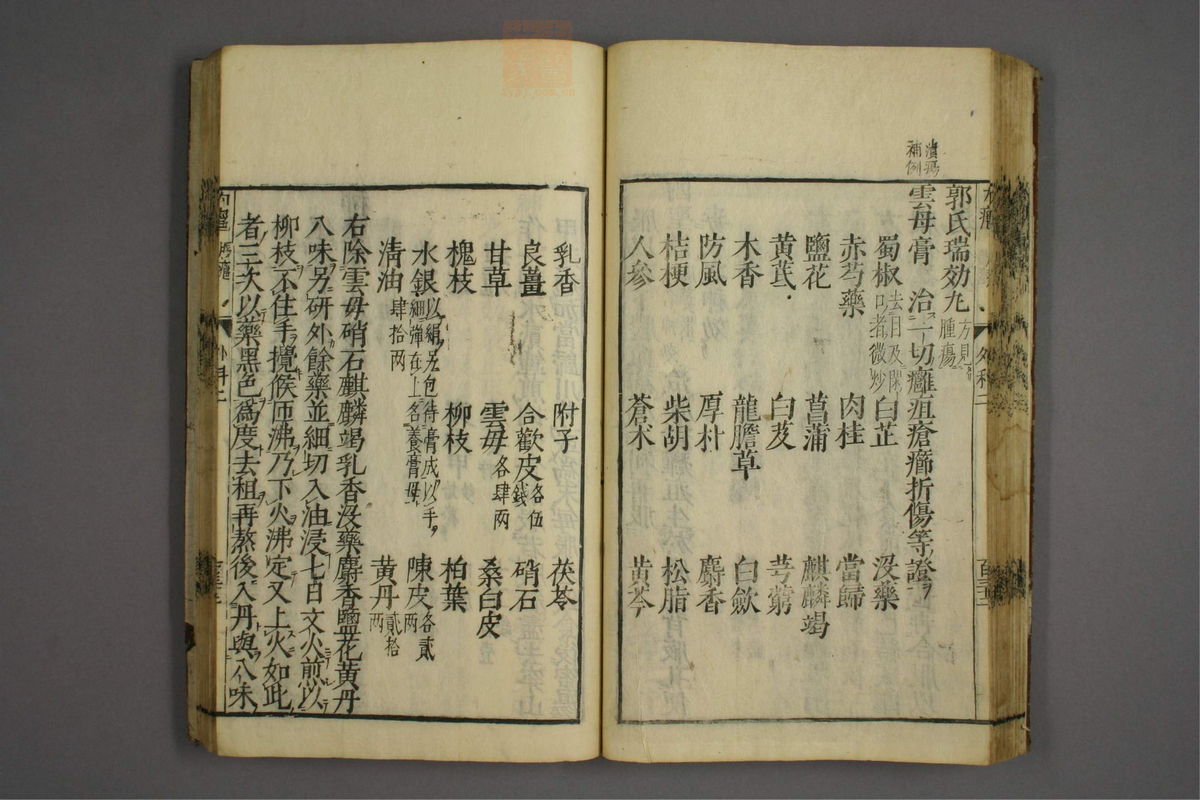 潰瘍
補例
郭氏瑞効丸 方見腫瘍
雲母膏 治一切癰疽瘡癤折傷等證
蜀椒 去目及閉口者微炒 白芷 沒藥
赤芍藥 肉桂 當歸
鹽花 菖蒲 麒麟竭
黃茋 白芨 芎藭
木香 龍膽草 白歛
防風 厚朴 麝香
桔梗 柴胡 松脂
人參 蒼朮 黃芩
乳香 附子 茯苓
良薑 合歡皮 各伍錢 硝石
甘草 雲母 各肆兩 桑白皮
槐枝 柳枝 柏葉
水銀 以絹另包待膏成以手細彈在上名養膏母 陳皮 各貳兩
清油 肆拾兩 黃丹 貳拾兩
右除雲母硝石麒麟竭乳香沒藥麝香鹽花黃丹
八味另研外餘藥並細切入油浸七日文火煎以
柳枝不住手攪候匝沸乃下火沸定又上火如此
者三次以藥黑色爲度去租再熬後入丹與八味